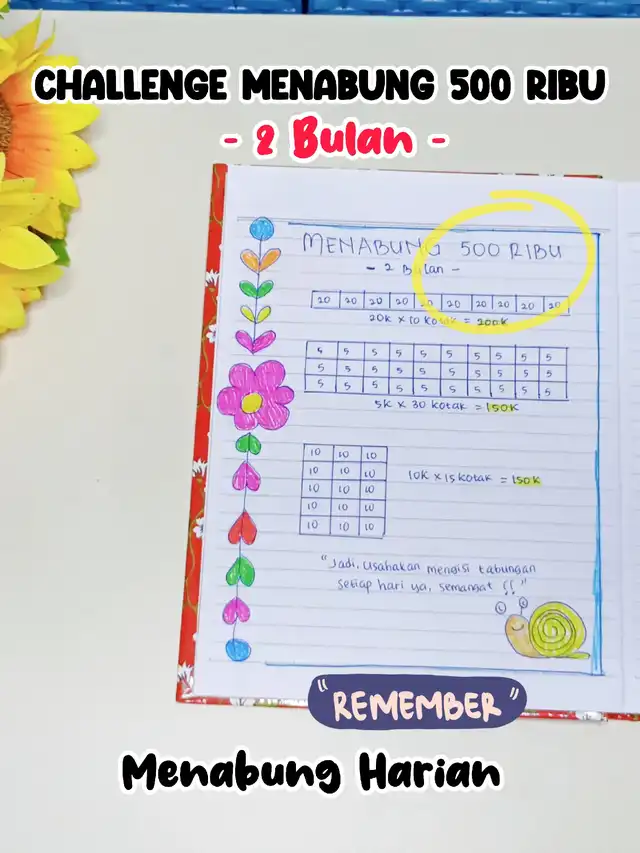 CHALLENGE MENABUNG 500 RIBU
- 2 Bulan -
MENABUNG 500 RIBU
- 2 Bulan -
20 20 20 20 20 20 20 20 20 20
20k x 10 kotak = 200k
5 5 5 5 5 5 5 5 5 5
5 5 5 5 5 5 5 5 5 5
5 5 5 5 5 5 5 5 5 5
5k x 30 kotak = 150k
10 10 10
10 10 10
10 10 10
10 10 10
10 10 10
10k x 15 kotak = 150k
"Jadi, Usahakan mengisi tabungan
setiap hari ya, semangat !!"
"REMEMBER"
Menabung Harian